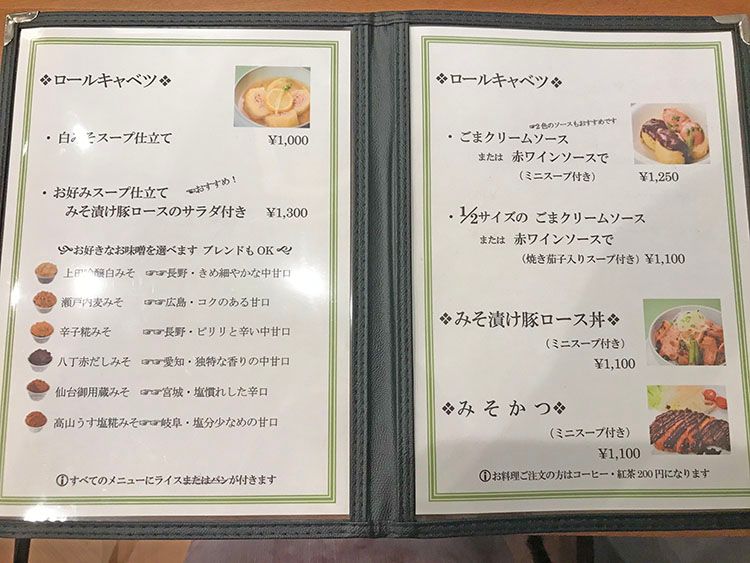 ❖ロールキャベツ❖
・ 白みそスープ仕立て ¥1,000
・ お好みスープ仕立て ☜おすすめ！
みそ漬け豚ロースのサラダ付き ¥1,300
お好きなお味噌を選べます ブレンドもOK
上田吟醸白みそ ☞☞長野・きめ細やかな中甘口
瀬戸内麦みそ ☞☞広島・コクのある甘口
辛子糀みそ ☞☞長野・ピリリと辛い中甘口
八丁赤だしみそ ☞☞愛知・独特な香りの中甘口
仙台御用蔵みそ ☞☞宮城・塩慣れした辛口
高山うす塩糀みそ☞☞岐阜・塩分少なめの甘口
ⓘすべてのメニューにライスまたはパンが付きます
❖ロールキャベツ❖
☞2色のソースもおすすめです
・ ごまクリームソース
または 赤ワインソースで
（ミニスープ付き） ¥1,250
・ 1/2サイズの ごまクリームソース
または 赤ワインソースで
（焼き茄子入りスープ付き）¥1,100
❖みそ漬け豚ロース丼❖
（ミニスープ付き）
¥1,100
❖みそかつ❖
（ミニスープ付き）
¥1,100
ⓘお料理ご注文の方はコーヒー・紅茶200円になります